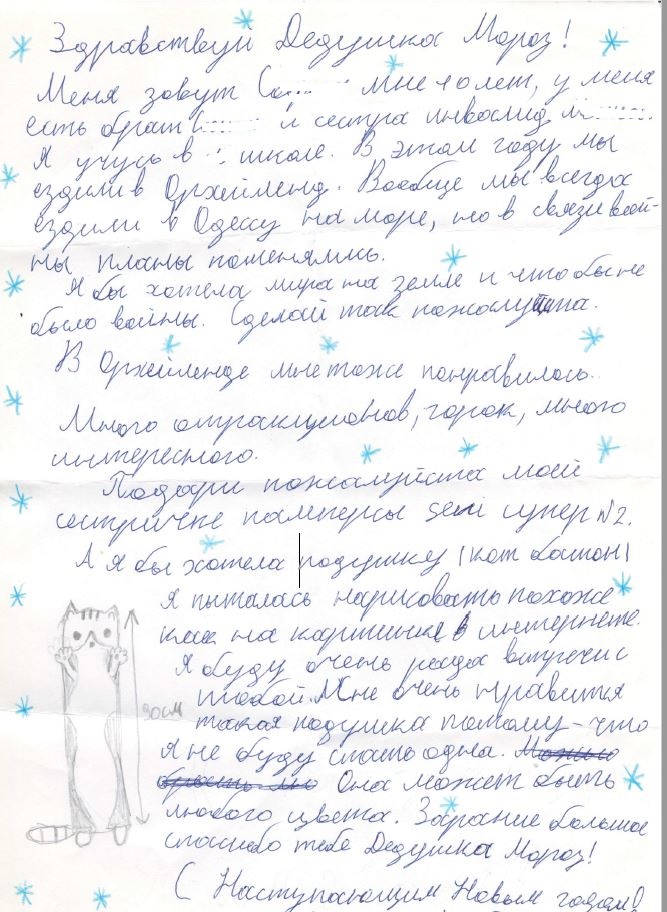 Здравствуй Дедушка Мороз!
Меня зовут С мне 10 лет, у меня
есть брат и сестра инвалид
Я учусь в школе. В этом году мы
ездили в Орхейленд. Вообще мы всегда
ездили в Одессу на море, но в связи вой-
ны планы поменялись.
Я бы хотела мира на земле и что бы не
было войны. Сделай так пожалуйста.
В Орхейленде мне тоже понравилось.
Много отракционов, горок, много
интересного.
Подари пожалуйста моей
сестричке памперсы seni супер №2.
А я бы хотела подушку (кот батон)
я пыталась нарисовать похоже
как на картинке в интернете.
Я буду очень рада встречи с
тобой. Мне очень нравится
такая подушка потому-что
я не буду спать одна.
Она может быть
любого цвета. Зарание большое
спасибо тебе Дедушка Мороз!
С Наступающим Новым годом!